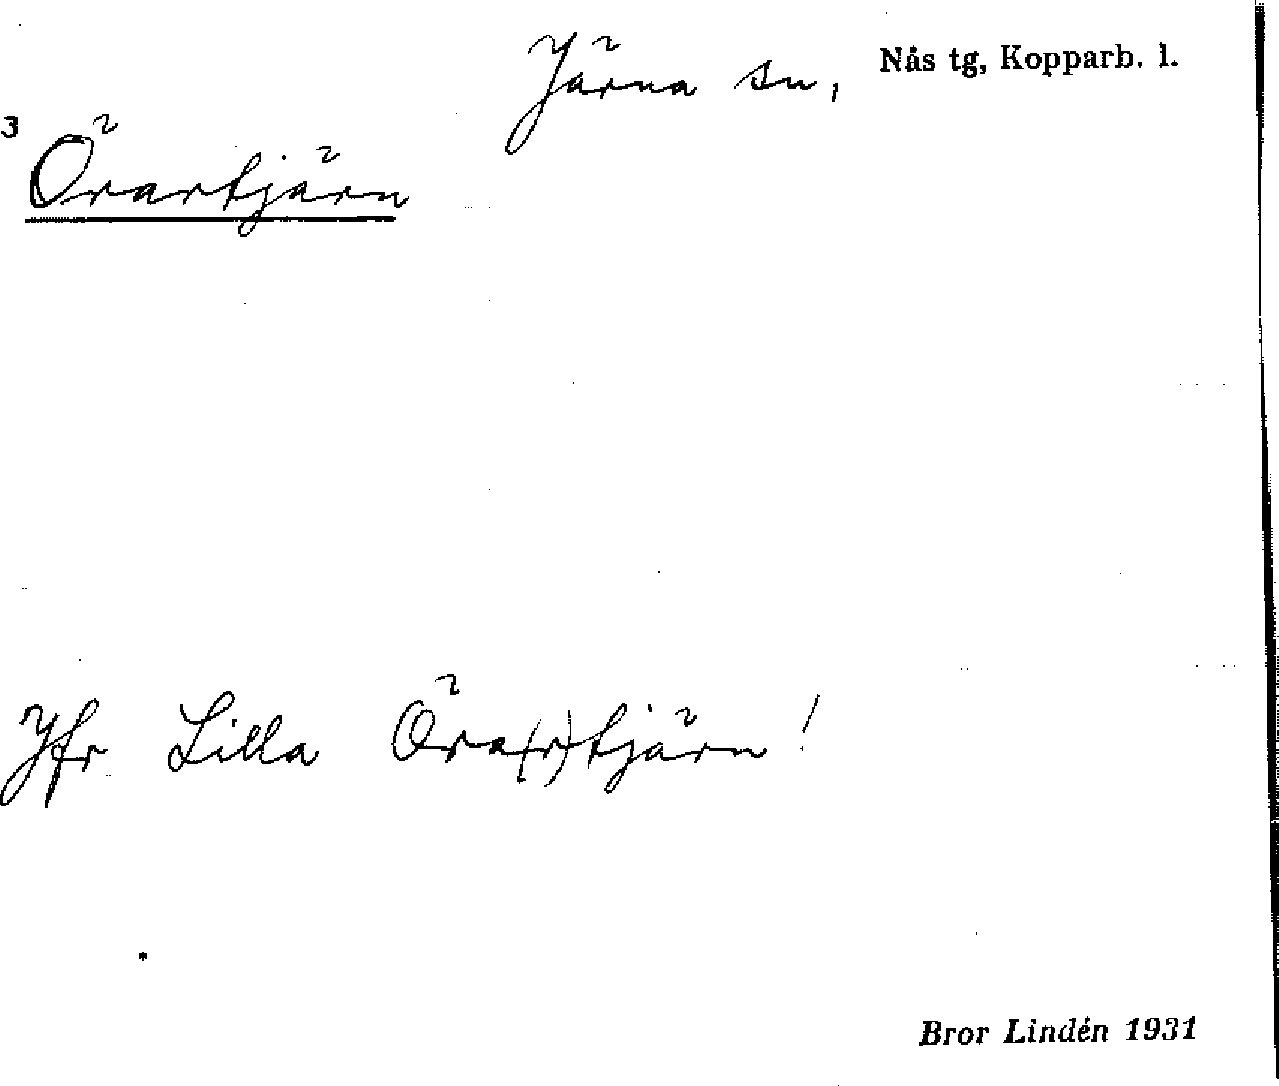 Järna sn, Nås tg, Kopparb. l.
3
Örartjärn
Jfr Lilla Öra(r)tjärn!
Bror Lindén 1931